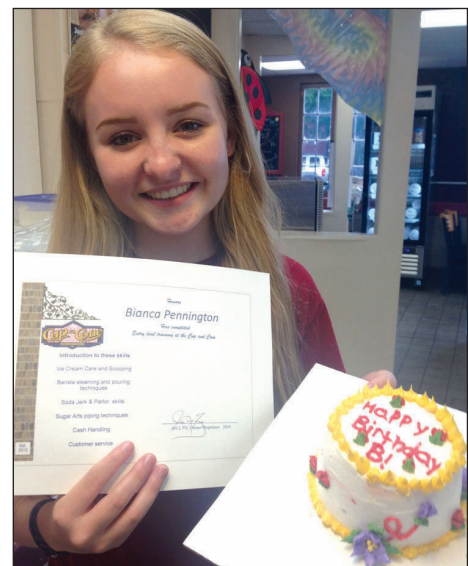 Honors
Bianca Pennington
Has completed
Entry level training at the Cup and Cone
Cup and Cone
Introduction to these skills
Ice Cream Care and Scooping
Barista steaming and pouring
techniques
Soda Jerk & Parlor skills
Sugar Arts piping techniques
Cash Handling
Customer service
Est.
2012
2014
HAPPY
Birthday
B!